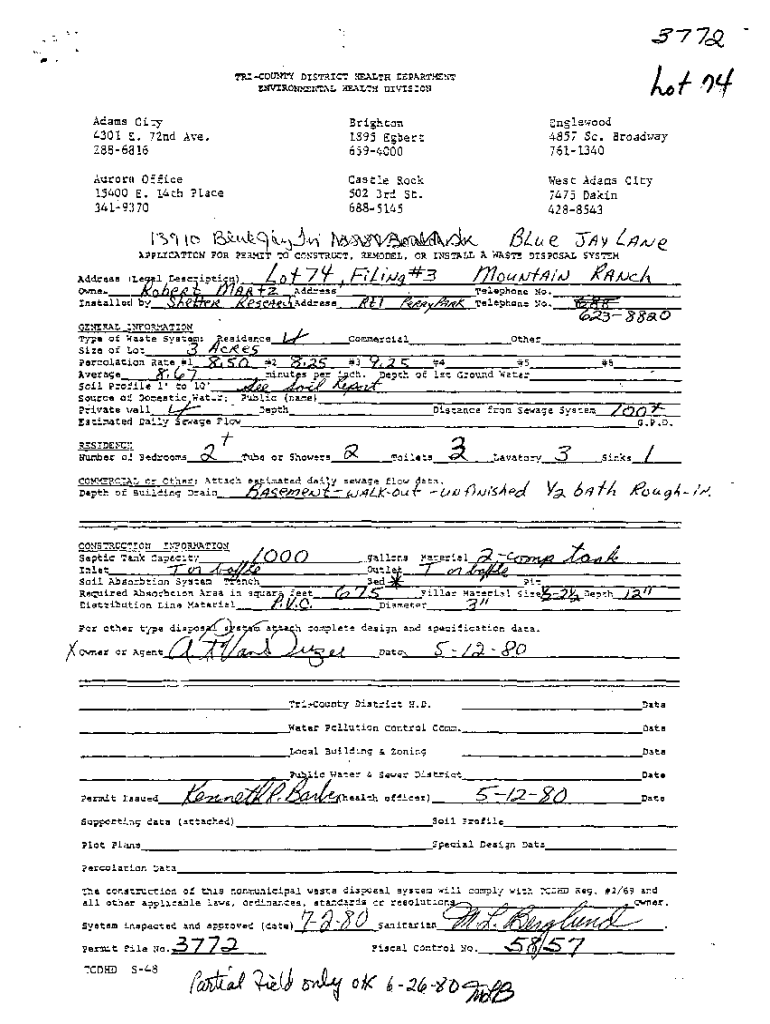 3772
Lot 74
TRI-COUNTY DISTRICT HEALTH DEPARTMENT
ENVIRONMENTAL HEALTH DIVISION
Adams City Brighton Englewood
4301 E. 72nd Ave. 1895 Egbert 4857 So. Broadway
288-6816 659-4000 761-1340
Aurora Office Castle Rock West Adams City
15400 E. 14th Place 502 3rd St. 7475 Dakin
341-9370 688-5145 428-8543
13910 BLUE JAY LANE
APPLICATION FOR PERMIT TO CONSTRUCT, REMODEL, OR INSTALL A WASTE DISPOSAL SYSTEM
Address (Legal Description) Lot 74, Filing #3 Mountain Ranch
Owner Robert Martz Address Telephone No.
Installed by Shelter Research Address RE1 Perry Park Telephone No. 688
623-8820
GENERAL INFORMATION
Type of Waste System: Residence Commercial Other
Size of Lot 3 Acres
Percolation Rate #1 8.50 #2 8.25 #3 9.25 #4 #5 #6
Average 8.67 minutes per inch. Depth of 1st Ground Water
Soil Profile 1' to 10' See Soil Report
Source of Domestic Water: Public (name)
Private well Depth Distance from Sewage System 100+
Estimated Daily Sewage Flow G.P.D.
RESIDENCE
Number of Bedrooms 2+ Tubs or Showers 2 Toilets 3 Lavatory 3 Sinks 1
COMMERCIAL or Other: Attach estimated daily sewage flow data.
Depth of Building Drain Basement-walk-out-unfinished 1/2 bath Rough-in.
CONSTRUCTION INFORMATION
Septic Tank Capacity 1000 gallons Material 2-comp tank
Inlet T or baffle Outlet T or baffle
Soil Absorbtion System Trench Bed * Pit
Required Absorbtion Area in square feet 675 Filler Material Size Depth 12"
Distribution Line Material P.V.C. Diameter 3"
For other type disposal system attach complete design and specification data.
X Owner or Agent Date 5-12-80
Tri-County District H.D. Date
Water Pollution Control Comm. Date
Local Building & Zoning Date
Public Water & Sewer District Date
Permit Issued Kenneth P. Barber (health officer) 5-12-80 Date
Supporting data (attached) Soil Profile
Plot Plans Special Design Data
Percolation Data
The construction of this nonmunicipal waste disposal system will comply with TCDHD Reg. #2/69 and
all other applicable laws, ordinances, standards or resolutions Owner.
System inspected and approved (date) 7-2-80 Sanitarian M.L. Berglund.
Permit File No. 3772 Fiscal Control No. 5857
TCDHD S-48
Partial Field only OK 6-26-80 MLB